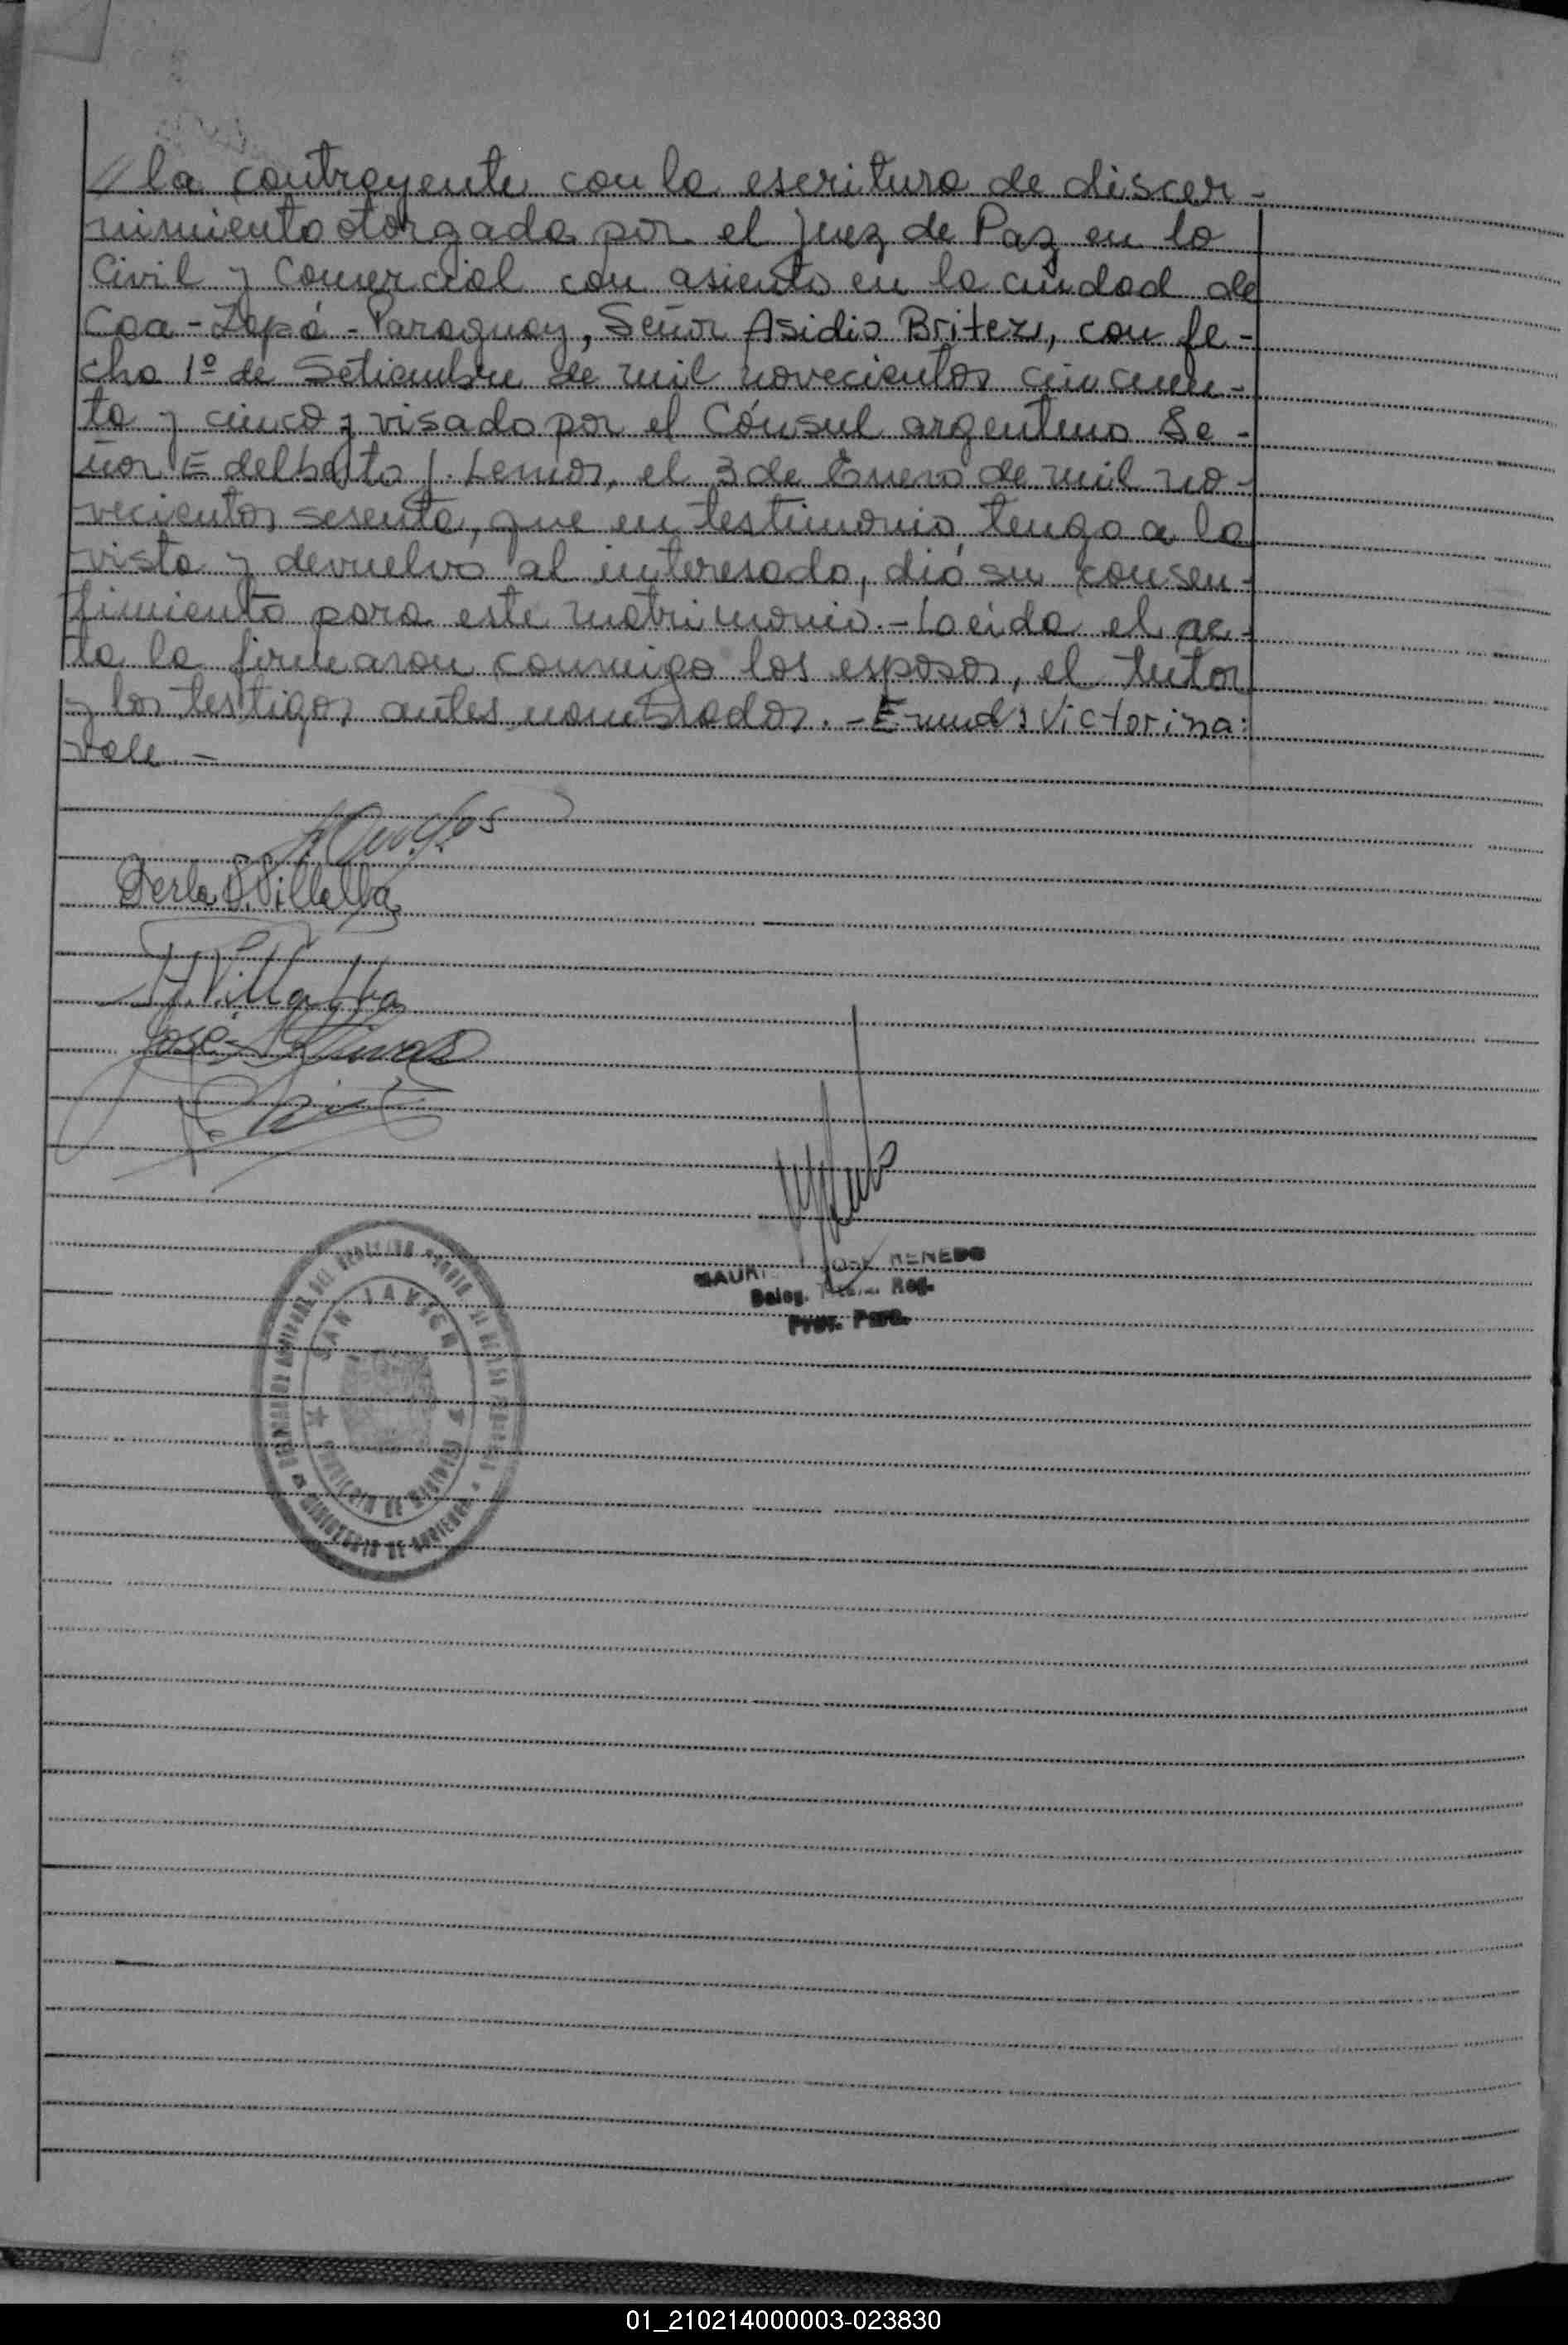 // la contrayente con la escritura de discer-
nimiento otorgada por el Juez de Paz en lo
Civil y Comercial con asiento en la ciudad de
Caa-Zapá-Paraguay, Señor Asidio Britez, con fe-
cha 1º de Setiembre de mil novecientos cincuen-
ta y cinco y visado por el Cónsul argentino Se-
ñor Edelberto J. Lemos, el 3 de Enero de mil no-
vecientos sesenta, que en testimonio tengo a la
vista y devuelvo al interesado, dió su consen-
timiento para este matrimonio.- Leída el ac-
ta la firmaron conmigo los esposos, el tutor
y los testigos antes nombrados.- Enmd: Victorina:
vale.-
Perla D. Villalba
Villalba
José
JOSE RENEDO
Deleg. Reg.
Prov. Pers.
SAN JAVIER
PROVINCIA DE MISIONES